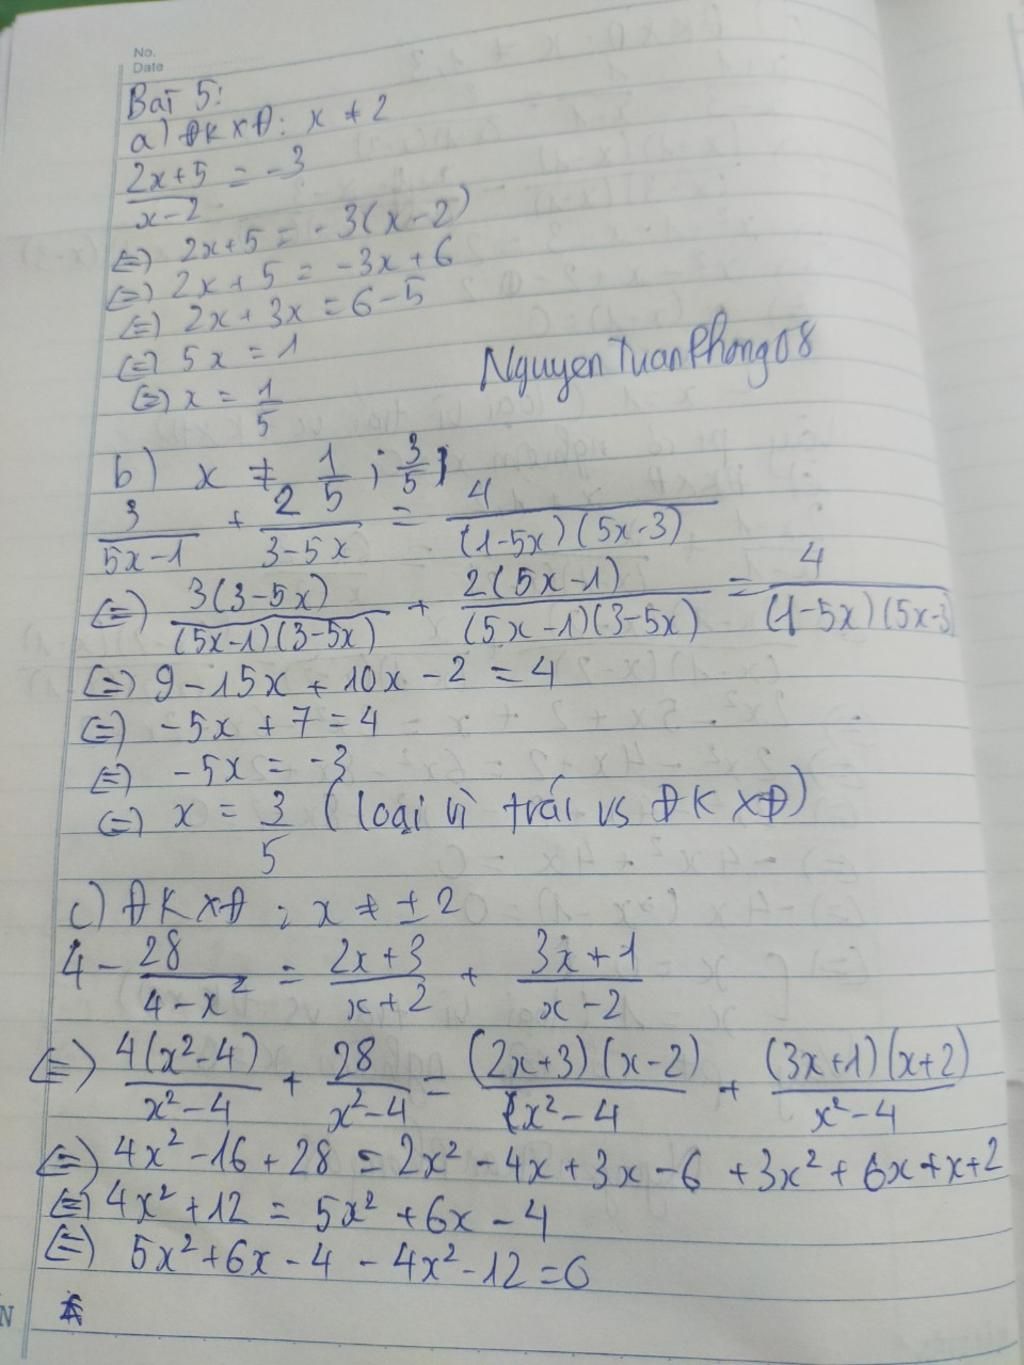 No.
Date
Bài 5:
a) ĐKXĐ: x ≠ 2
(2x+5)/(x-2) = -3
(=) 2x+5 = -3(x-2)
(=) 2x+5 = -3x+6
(=) 2x+3x = 6-5
(=) 5x = 1
(=) x = 1/5
NguyenTuanPhong08
b) x ≠ 1/5 ; 3/5
3/(5x-1) + 2/(3-5x) = 4/((1-5x)(5x-3))
(=) 3(3-5x)/((5x-1)(3-5x)) + 2(5x-1)/((5x-1)(3-5x)) = 4/((1-5x)(5x-3)
(=) 9-15x+10x-2 = 4
(=) -5x+7 = 4
(=) -5x = -3
(=) x = 3/5 (loại vì trái vs ĐKXĐ)
c) ĐKXĐ: x ≠ ±2
4 - 28/(4-x²) = (2x+3)/(x+2) + (3x+1)/(x-2)
(=) 4(x²-4)/(x²-4) + 28/(x²-4) = (2x+3)(x-2)/(x²-4) + (3x+1)(x+2)/(x²-4)
(=) 4x²-16+28 = 2x²-4x+3x-6+3x²+6x+x+2
(=) 4x²+12 = 5x²+6x-4
(=) 5x²+6x-4-4x²-12=0